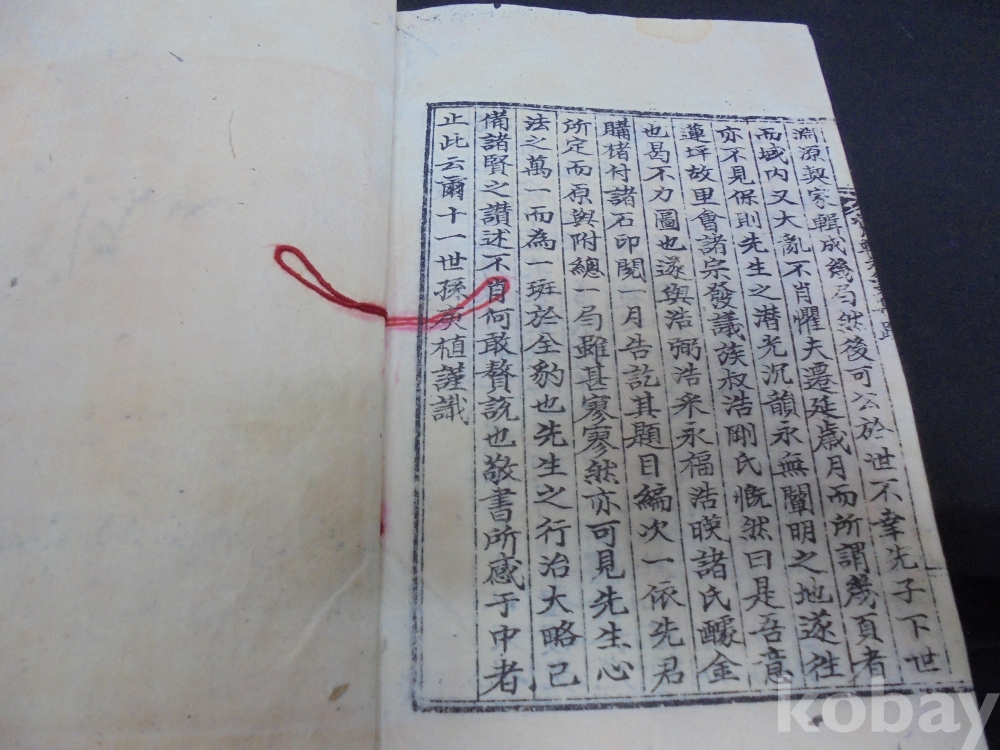 淵源契家輯成幾局然後可公於世不幸先子下世
而域內又大亂不肖懼夫遷延歲月而所謂幾頁者
亦不見保則先生之潜光沉韻永無闡明之地遂往
蓮坪故里會諸宗發議族叔浩剛氏慨然曰是吾意
也曷不力圖也遂與浩弼浩釆永福浩暎諸氏醵金
購猪付諸石印閱一月告訖其題目編次一依先君
所定而原與附總一局雖甚寥寥然亦可見先生心
法之萬一而為一斑於全豹也先生之行治大略已
備諸賢之讃述不肖何敢贅說也敬書所感于中者
止此云爾十一世孫庚植謹識
kobay